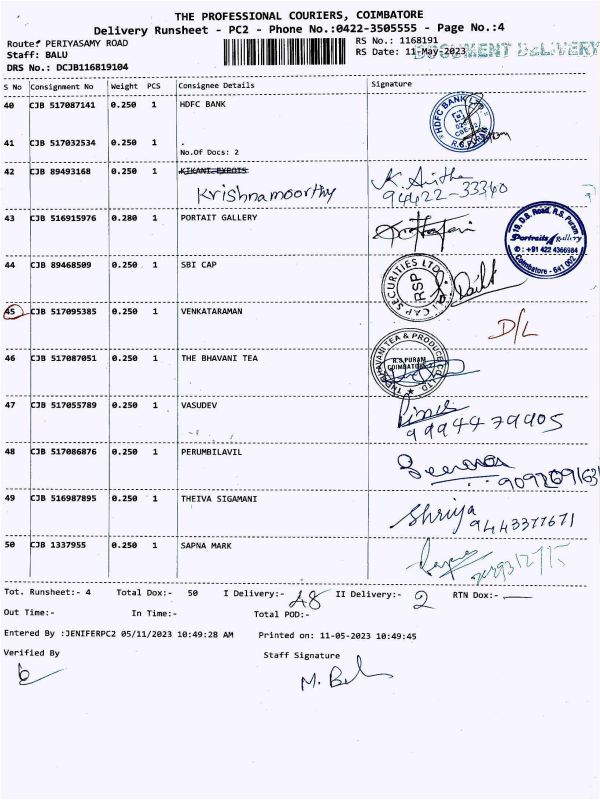 THE PROFESSIONAL COURIERS, COIMBATORE
Delivery Runsheet - PC2 - Phone No.:0422-3505555 - Page No.:4
Route: PERIYASAMY ROAD
RS No.: 1168191
Staff: BALU
RS Date: 11-May-2023
DOCUMENT DELIVERY
DRS No.: DCJB116819104
S No Consignment No Weight PCS Consignee Details Signature
40 CJB 517087141 0.250 1 HDFC BANK
HDFC BANK LTD
R.S.PURAM
41 CJB 517032534 0.250 1 .
No.Of Docs: 2
42 CJB 89493168 0.250 1 KIKANI EXPOTS
Krishnamoorthy
K. Anitha
94422-33340
43 CJB 516915976 0.280 1 PORTAIT GALLERY
19, D.B. Road, R.S. Puram
Portraits gallery
✆ : +91 422 4366984
Coimbatore - 641 002
44 CJB 89468509 0.250 1 SBI CAP
CAP SECURITIES LTD
RSP
45 CJB 517095385 0.250 1 VENKATARAMAN
D/L
46 CJB 517087051 0.250 1 THE BHAVANI TEA
THE BHAVANI TEA & PRODUCE CO LTD
R.S.PURAM
COIMBATORE-2
47 CJB 517055789 0.250 1 VASUDEV
9994479905
48 CJB 517086876 0.250 1 PERUMBILAVIL
49 CJB 516987895 0.250 1 THEIVA SIGAMANI
Shriya
9443377671
50 CJB 1337955 0.250 1 SAPNA MARK
Tot. Runsheet:- 4 Total Dox:- 50 I Delivery:- 48 II Delivery:- 2 RTN Dox:-
Out Time:- In Time:- Total POD:-
Entered By :JENIFERPC2 05/11/2023 10:49:28 AM Printed on: 11-05-2023 10:49:45
Verified By Staff Signature